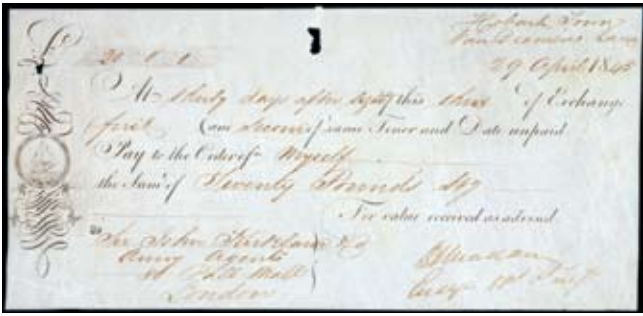 Hobart Town
Van Diemens Land
29 April 1845
At thirty days after sight this third of Exchange
first and Second of same Tenor and Date unpaid
Pay to the Order of Myself
the Sum of Pounds Stg
For value received as advised
To Sir John Kirkland
Army Agents
Pall Mall
London